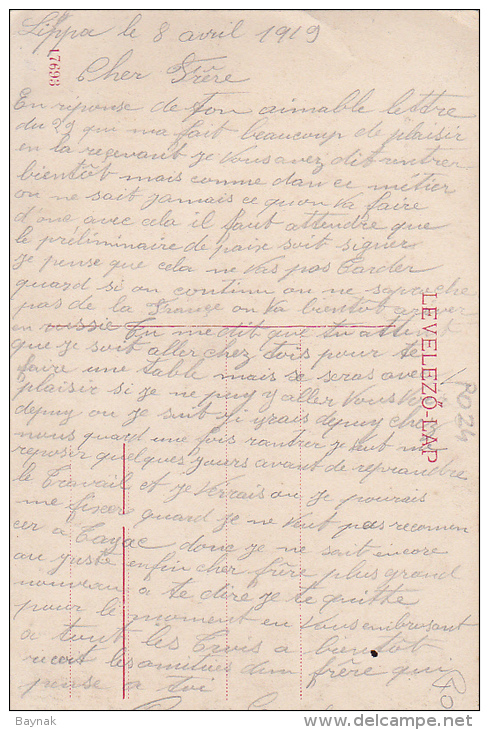 Lippa le 8 avril 1919
17693
Cher Frère
En réponse de ton aimable lettre
du 29 qui ma fait beaucoup de plaisir
en la recevant je vous avez dit rentrer
bientôt mais comme dans ce métier
on ne sait jamais ce quon va faire
d'one avec cela il faut attendre que
le préliminaire de paix soit signer
je pense que cela ne vas pas tarder
quard si on continu on ne saproche
pas de la France on va bientôt arriver
en russie Tu me dit que tu attent
que je soit aller chez tois pour te
faire une table mais se seras avec
plaisir si je ne puy y aller vous voir
depuy ou je suit j'irais depuy chez
nous quard une fois rantrer je veut me
reposer quelques jours avant de reprandre
le travail et je verrais ou je pourais
me fixer quard je ne veut pas recomen
cer a Tayac donc je ne sait encore
au juste enfin cher frère plus grand
nouveau a te dire je te quitte
pour le moment en vous embrassant
a tout les trois a bientôt
recoit les amitiés dun frère qui
pense a toi
LEVELEZŐ-LAP
2024
20
Baynak
www.delcampe.net